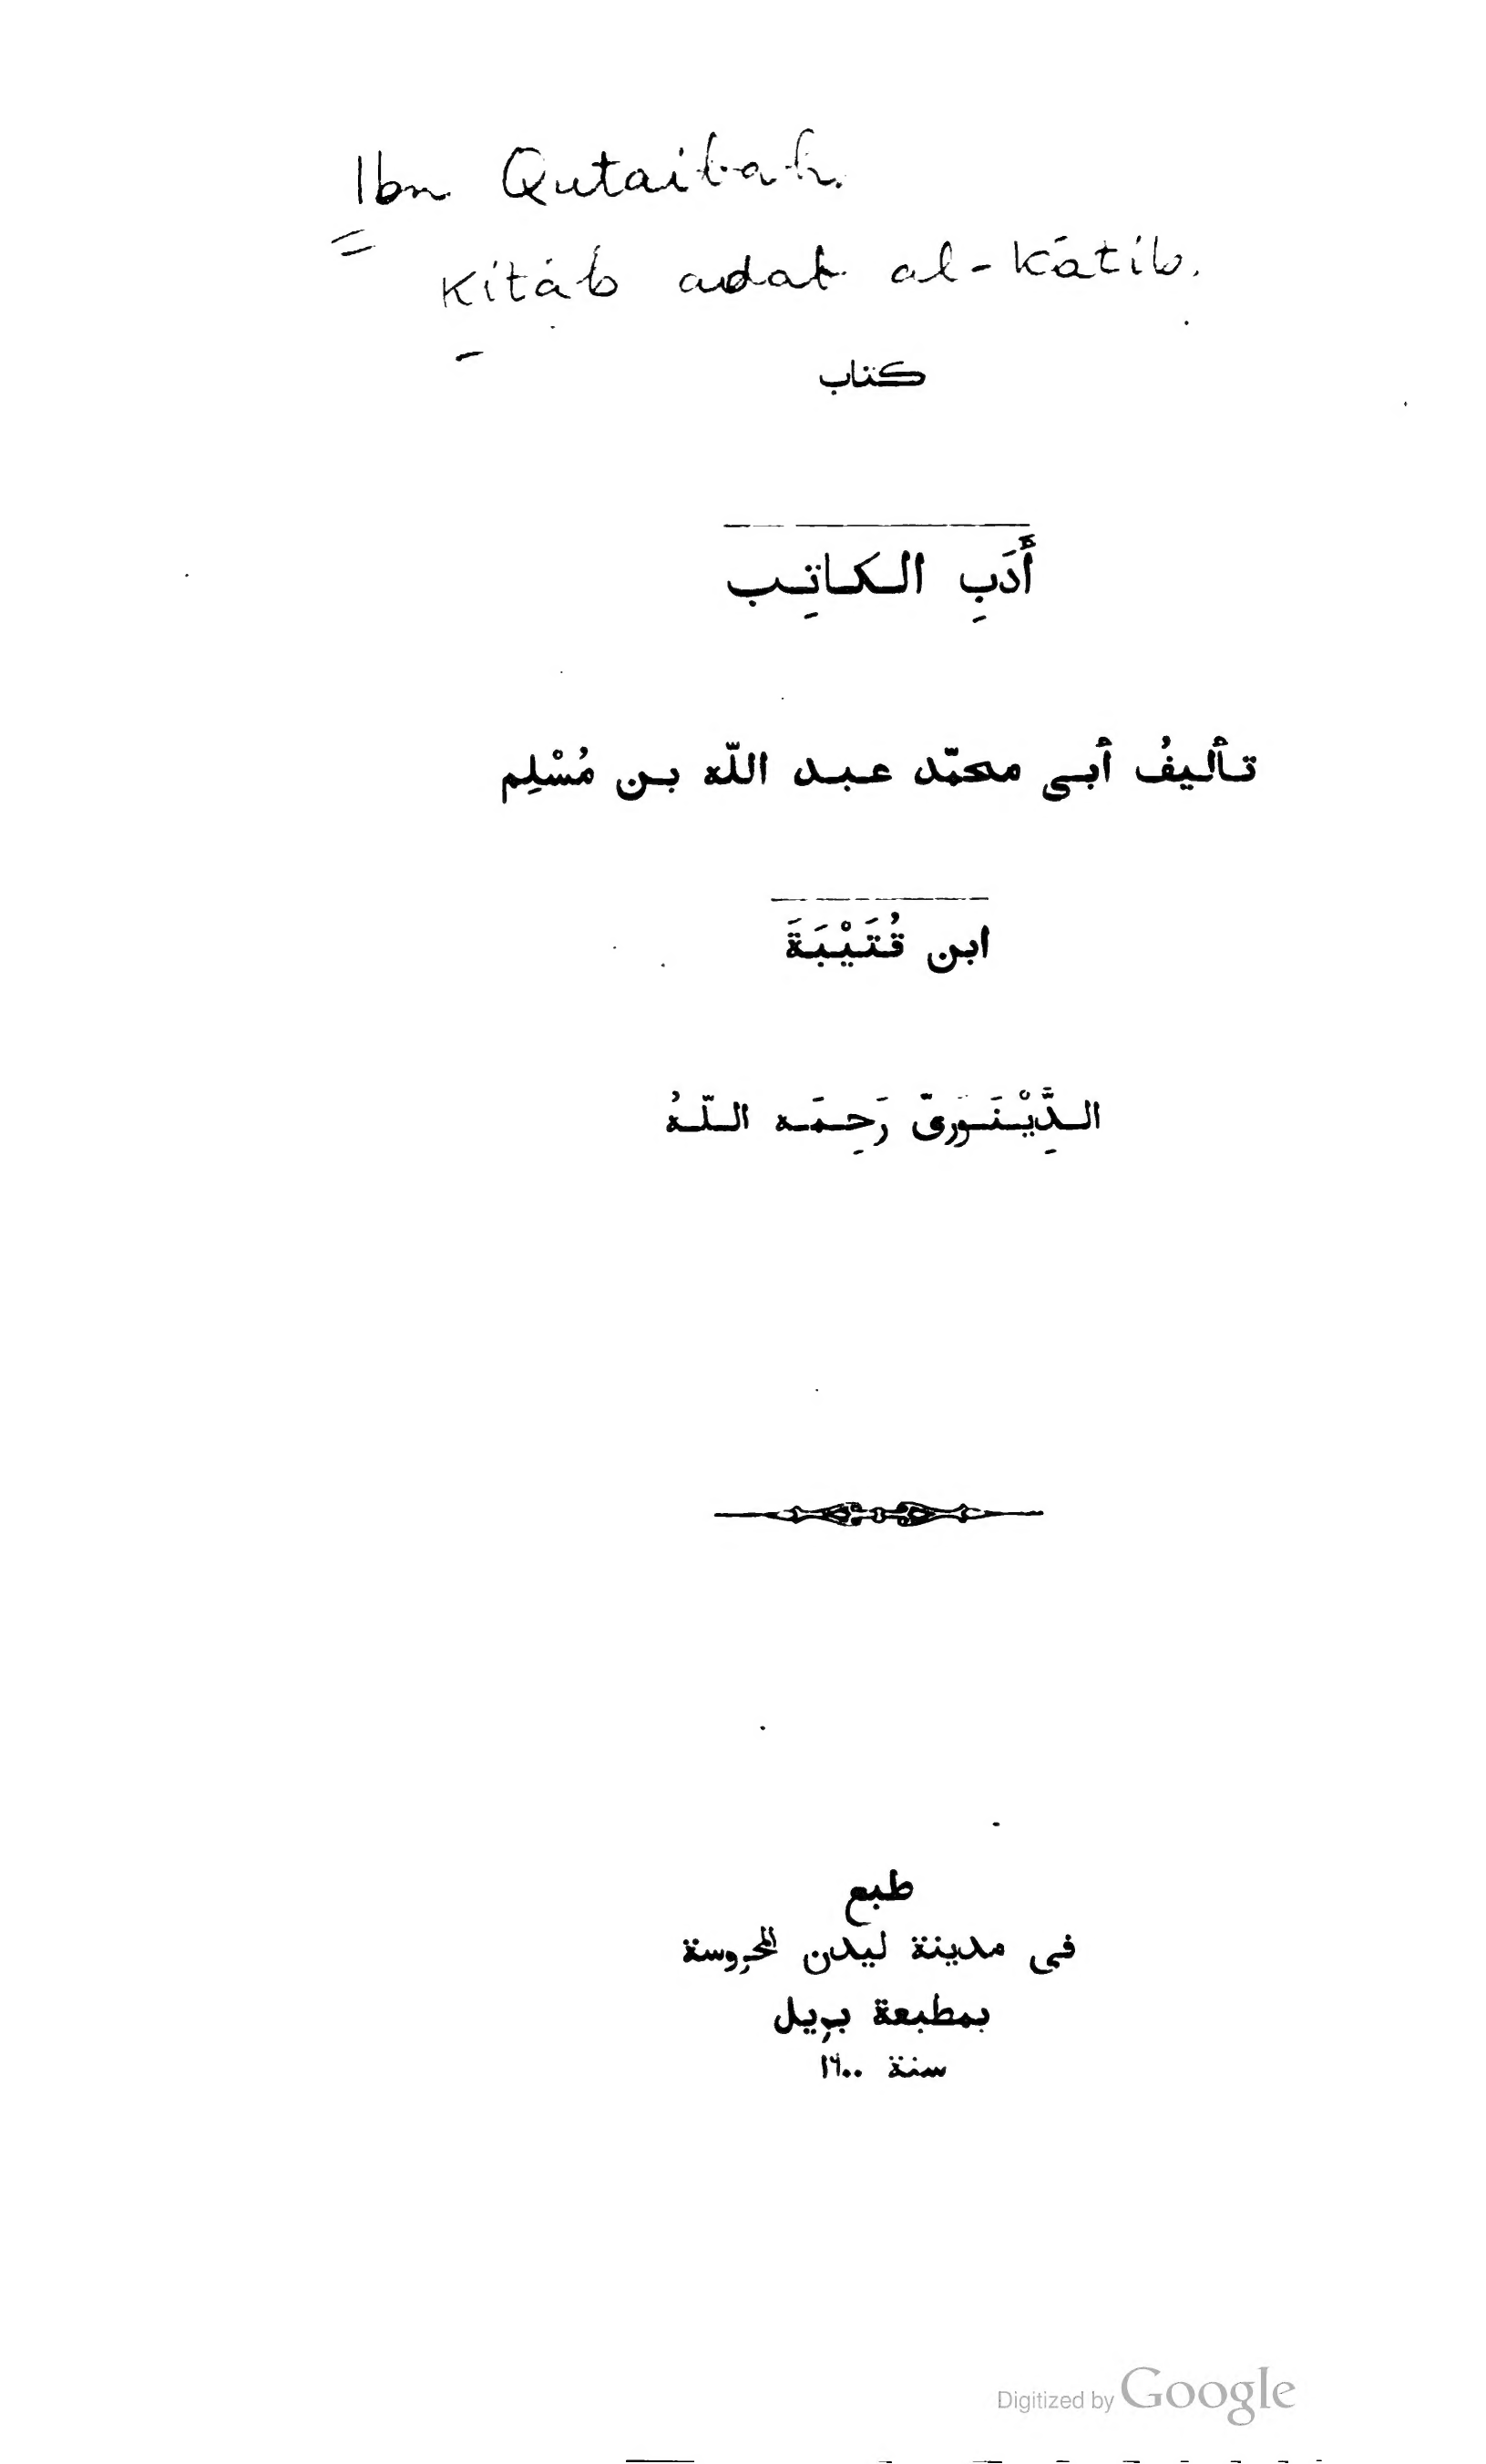 Ibn Qutaibah.
Kitáb adat al-Kātib.
كتاب
أَدَبِ الكاتِب
تأليفُ أبى محمّد عبد اللّه بن مُسْلِم
ابن قُتَيْبَةَ
الدِّيْنَوَرىّ رَحِمَه اللّهُ
طبع
فى مدينة ليدن المحروسة
بمطبعة بريل
سنة ١٩٠٠
Digitized by Google